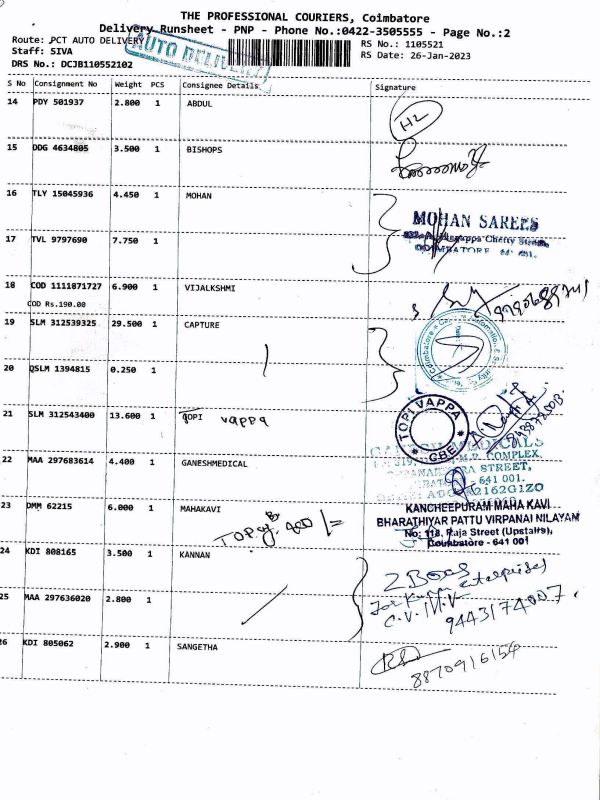 THE PROFESSIONAL COURIERS, Coimbatore
Delivery Runsheet - PNP - Phone No.:0422-3505555 - Page No.:2
Route: PCT AUTO DELIVERY
AUTO DELIVERY
RS No.: 1105521
Staff: SIVA
RS Date: 26-Jan-2023
DRS No.: DCJB110552102
S No Consignment No Weight PCS Consignee Details Signature
14 PDY 501937 2.800 1 ABDUL
15 DDG 4634805 3.500 1 BISHOPS
16 TLY 15045936 4.450 1 MOHAN
MOHAN SAREES
Chetty Street,
COIMBATORE
17 TVL 9797690 7.750 1
18 COD 1111871727 6.900 1 VIJALKSHMI
COD Rs.190.00
19 SLM 312539325 29.500 1 CAPTURE
20 QSLM 1394815 0.250 1
21 SLM 312543400 13.600 1 TOPI vappa
TOPI VAPPA
CBE
22 MAA 297683614 4.400 1 GANESHMEDICAL
COMPLEX,
STREET,
641 001.
23 DMM 62215 6.000 1 MAHAKAVI
KANCHEEPURAM MAHA KAVI
BHARATHIYAR PATTU VIRPANAI NILAYAM
No: 118, Raja Street (Upstairs),
Coimbatore - 641 001
24 KDI 808165 3.500 1 KANNAN
2 Boxes
25 MAA 297636020 2.800 1
9443174007.
26 KDI 805062 2.900 1 SANGETHA
8870916154